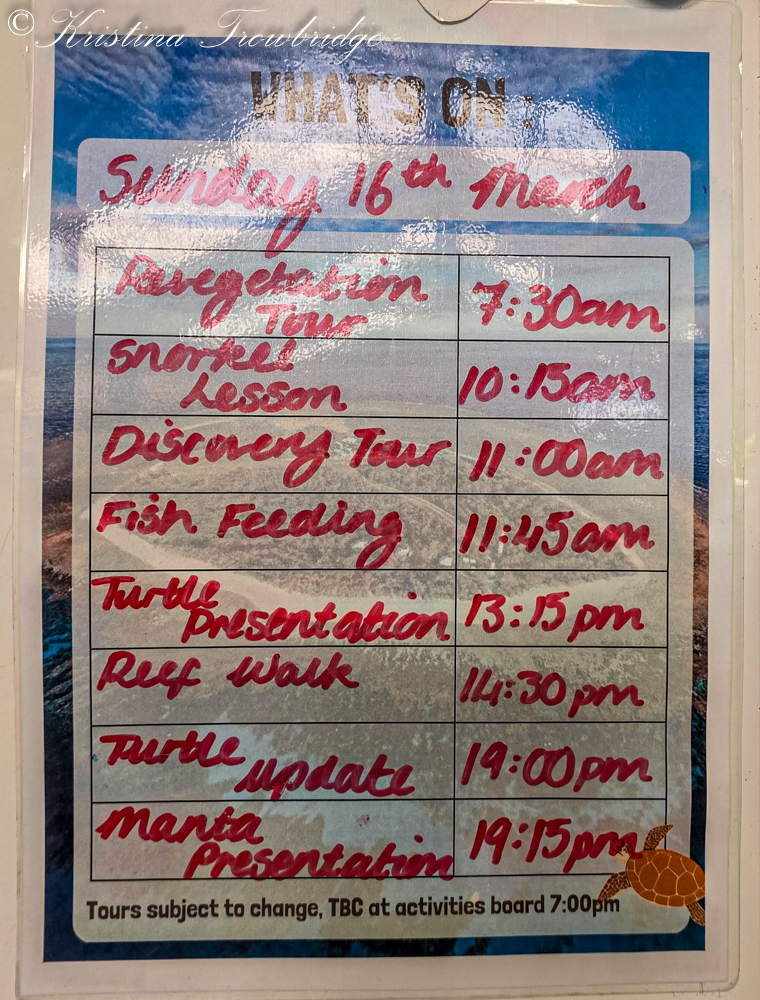 © Kristina Trowbridge
WHAT'S ON:
Sunday 16th March
Revegetation
Tour
7:30am
Snorkel
Lesson
10:15am
Discovery Tour
11:00am
Fish Feeding
11:45am
Turtle
Presentation
13:15pm
Reef Walk
14:30pm
Turtle
update
19:00pm
Manta
Presentation
19:15pm
Tours subject to change, TBC at activities board 7:00pm